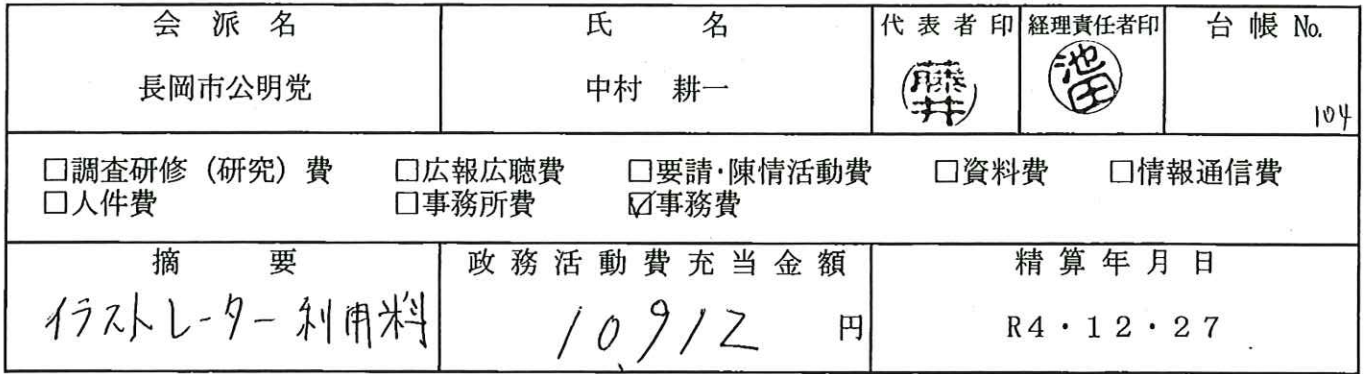 会派名 氏名 代表者印 経理責任者印 台帳 No.
長岡市公明党 中村 耕一 藤井 池田 104
□調査研修（研究）費 □広報広聴費 □要請・陳情活動費 □資料費 □情報通信費
□人件費 □事務所費 ☑事務費
摘要 政務活動費充当金額 精算年月日
イラストレーター利用料 10,912 円 R4・12・27